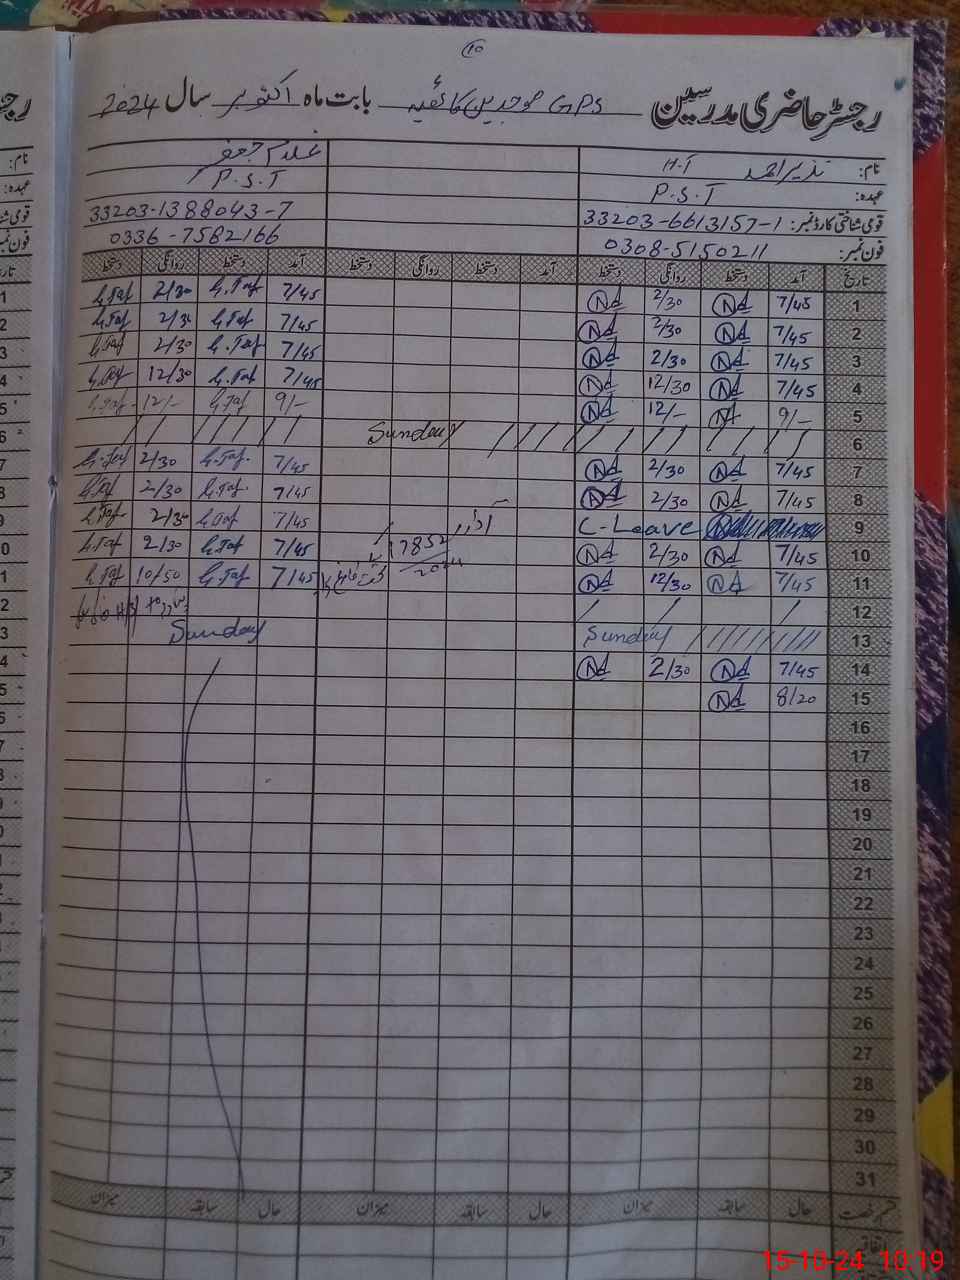 10
رجسٹر حاضری مدرسین GPS بابت ماہ اکتوبر سال 2024
نام: نذیر احمد H.T غلام جعفر
عہدہ: P.S.T P.S.T
قومی شناختی کارڈ نمبر: 33203-6613157-1 33203-1388043-7
فون نمبر: 0308-5150211 0336-7582166
تاریخ آمد دستخط روانگی دستخط آمد دستخط روانگی دستخط آمد دستخط روانگی دستخط
1 7/45 Nd 2/30 Nd 7/45 G.Taf 2/30 G.Taf
2 7/45 Nd 2/30 Nd 7/45 G.Taf 2/30 G.Taf
3 7/45 Nd 2/30 Nd 7/45 G.Taf 2/30 G.Taf
4 7/45 Nd 12/30 Nd 7/45 G.Taf 12/30 G.Taf
5 9/- Nd 12/- Nd 9/- G.Taf 12/- G.Taf
6 Sunday
7 7/45 Nd 2/30 Nd 7/45 G.Taf 2/30 G.Taf
8 7/45 Nd 2/30 Nd 7/45 G.Taf 2/30 G.Taf
9 C-Leave آڈر 7/45 G.Taf 2/30 G.Taf
10 7/45 Nd 2/30 Nd 17852 7/45 G.Taf 2/30 G.Taf
11 7/45 Nd 12/30 Nd 7/45 G.Taf 10/50 G.Taf
12
13 Sunday Sunday
14 7/45 Nd 2/30 Nd
15 8/20 Nd
16
17
18
19
20
21
22
23
24
25
26
27
28
29
30
31
قسم رخصت حال سابقہ میزان حال سابقہ میزان حال سابقہ میزان
اتفاقیہ
15-10-24 10:19